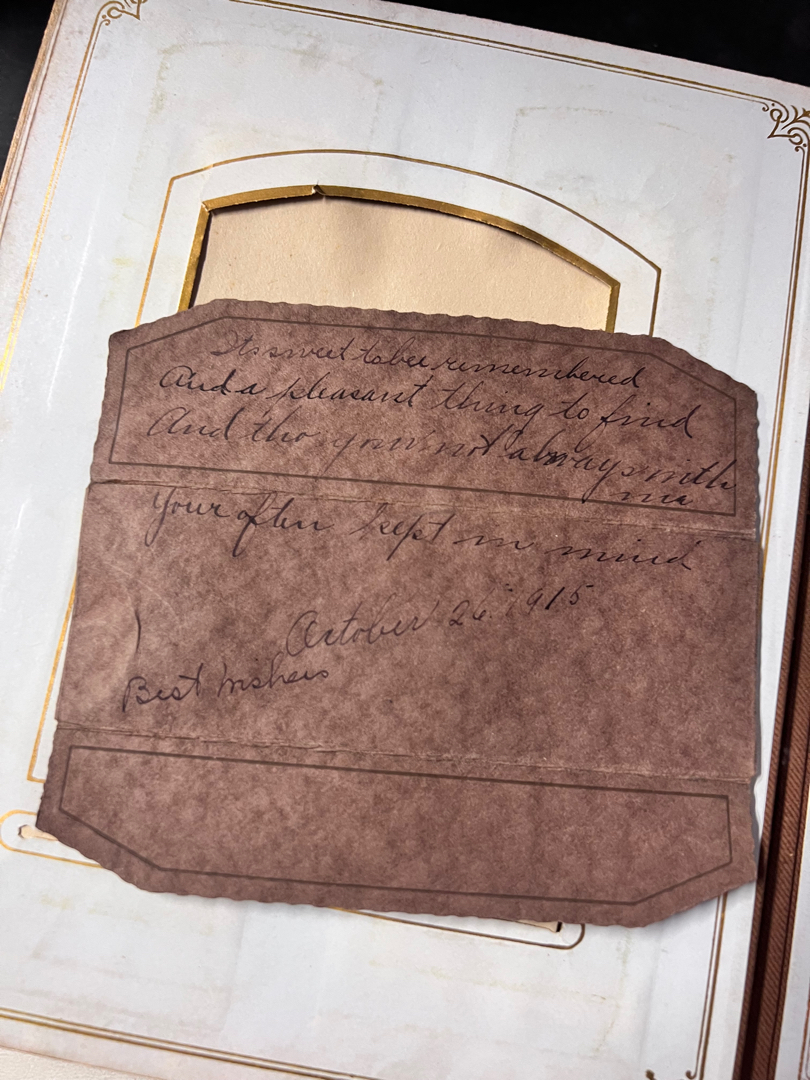 Its sweet to bee remembered
And a pleasant thing to find
And tho your not always with
me
Your often kept in mind
October 26. 1915
Best Wishers